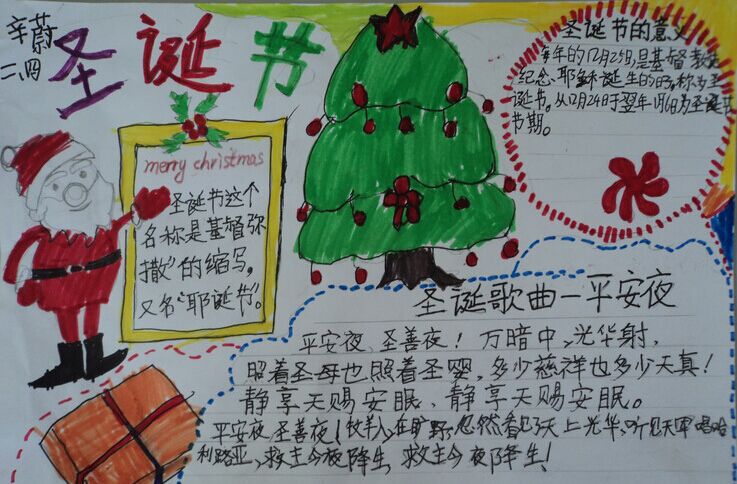 辛蔚
二、四
圣诞节
merry christmas
圣诞节这个
名称是基督弥
撒”的缩写,
又名“耶诞节”。
圣诞节的意义
年的12月25日,是基督教徒
纪念、耶稣诞生的日子,称为圣
诞节。从12月24日于翌年1月6日为圣诞节
节期。
圣诞歌曲一平安夜
平安夜、圣善夜!万暗中,光华射,
照着圣母也照着圣婴,多少慈祥也多少天真!
静享天赐安眠、静享天赐安眠。
平安夜,圣善夜!牧羊人,在旷野,忽然看见了天上光华,听见天军唱哈
利路亚,救主今夜降生,救主今夜降生!